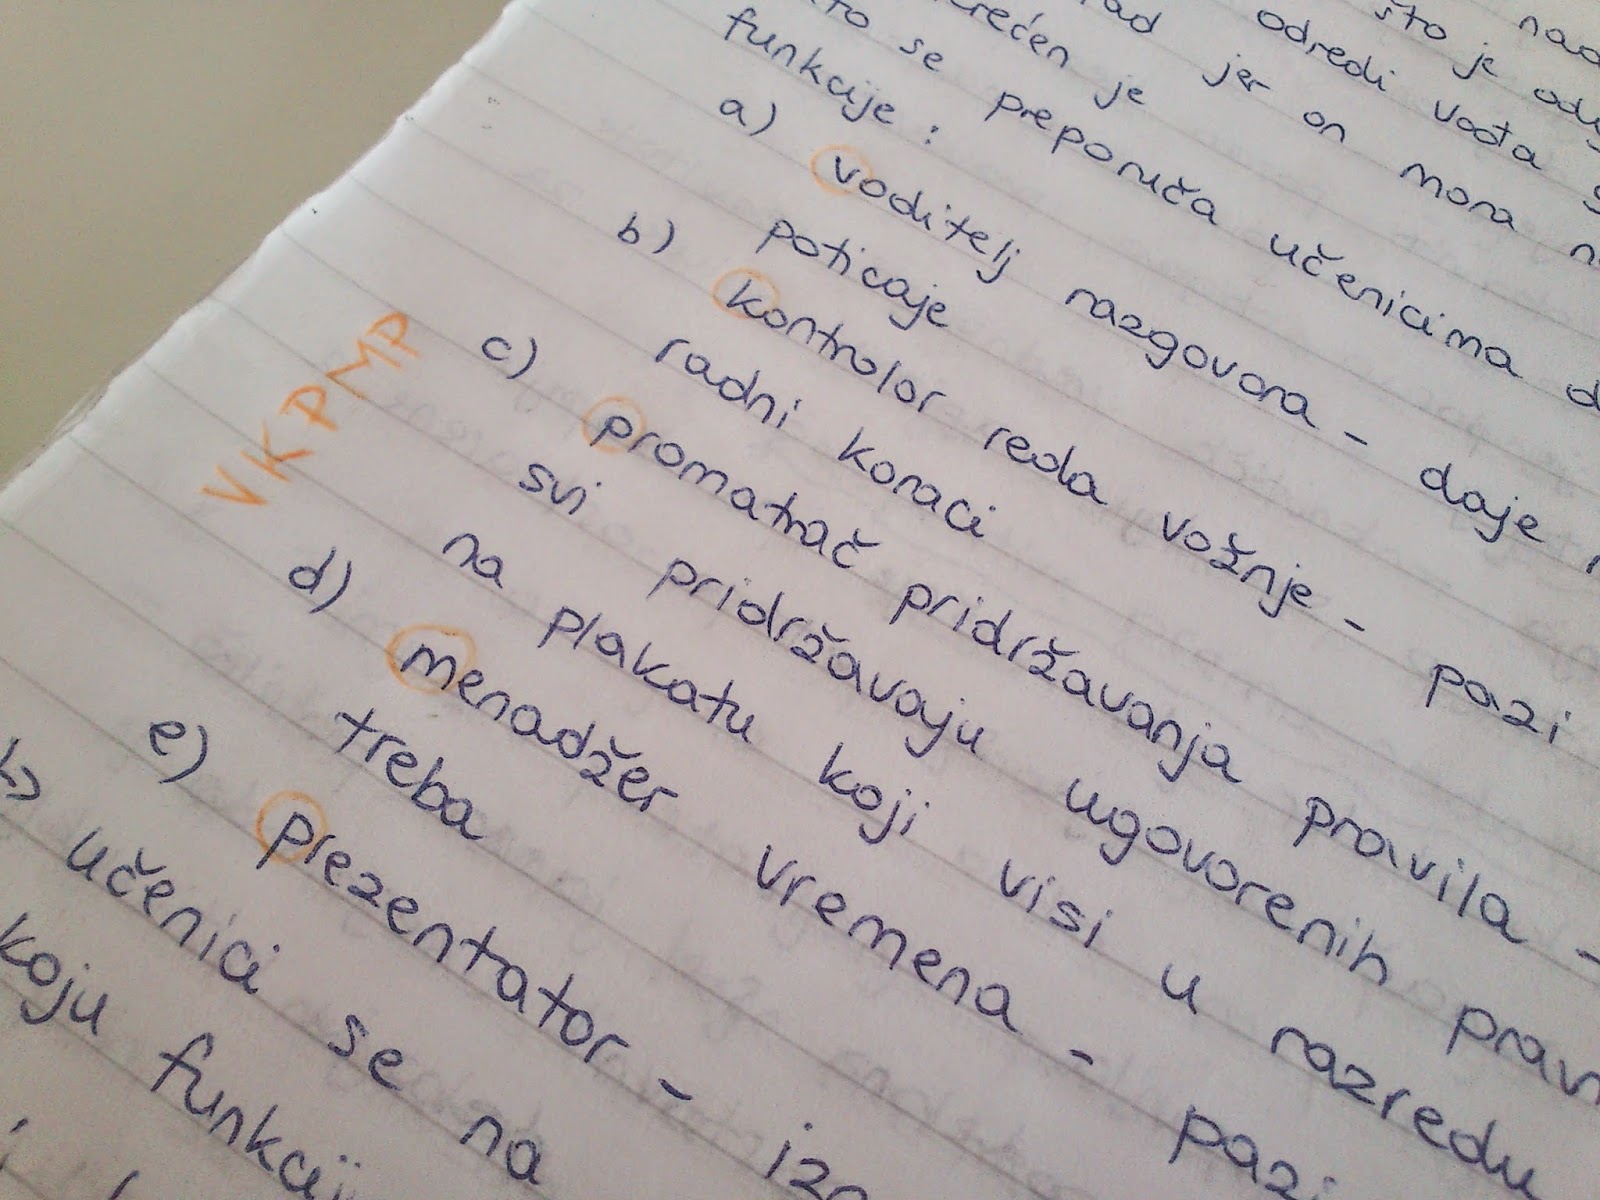 što je
odredi vođa
je jer on mora
se preporuča učenicima
funkcije:
a) voditelj razgovora - daje
poticaje
b) kontrolor reda vožnje - pazi
radni koraci
c) promatrač pridržavanja pravila -
svi pridržavaju ugovorenih
na plakatu koji visi u razredu
d) menadžer vremena - pazi
treba
e) prezentator -
učenici se na
koju
VKPMP